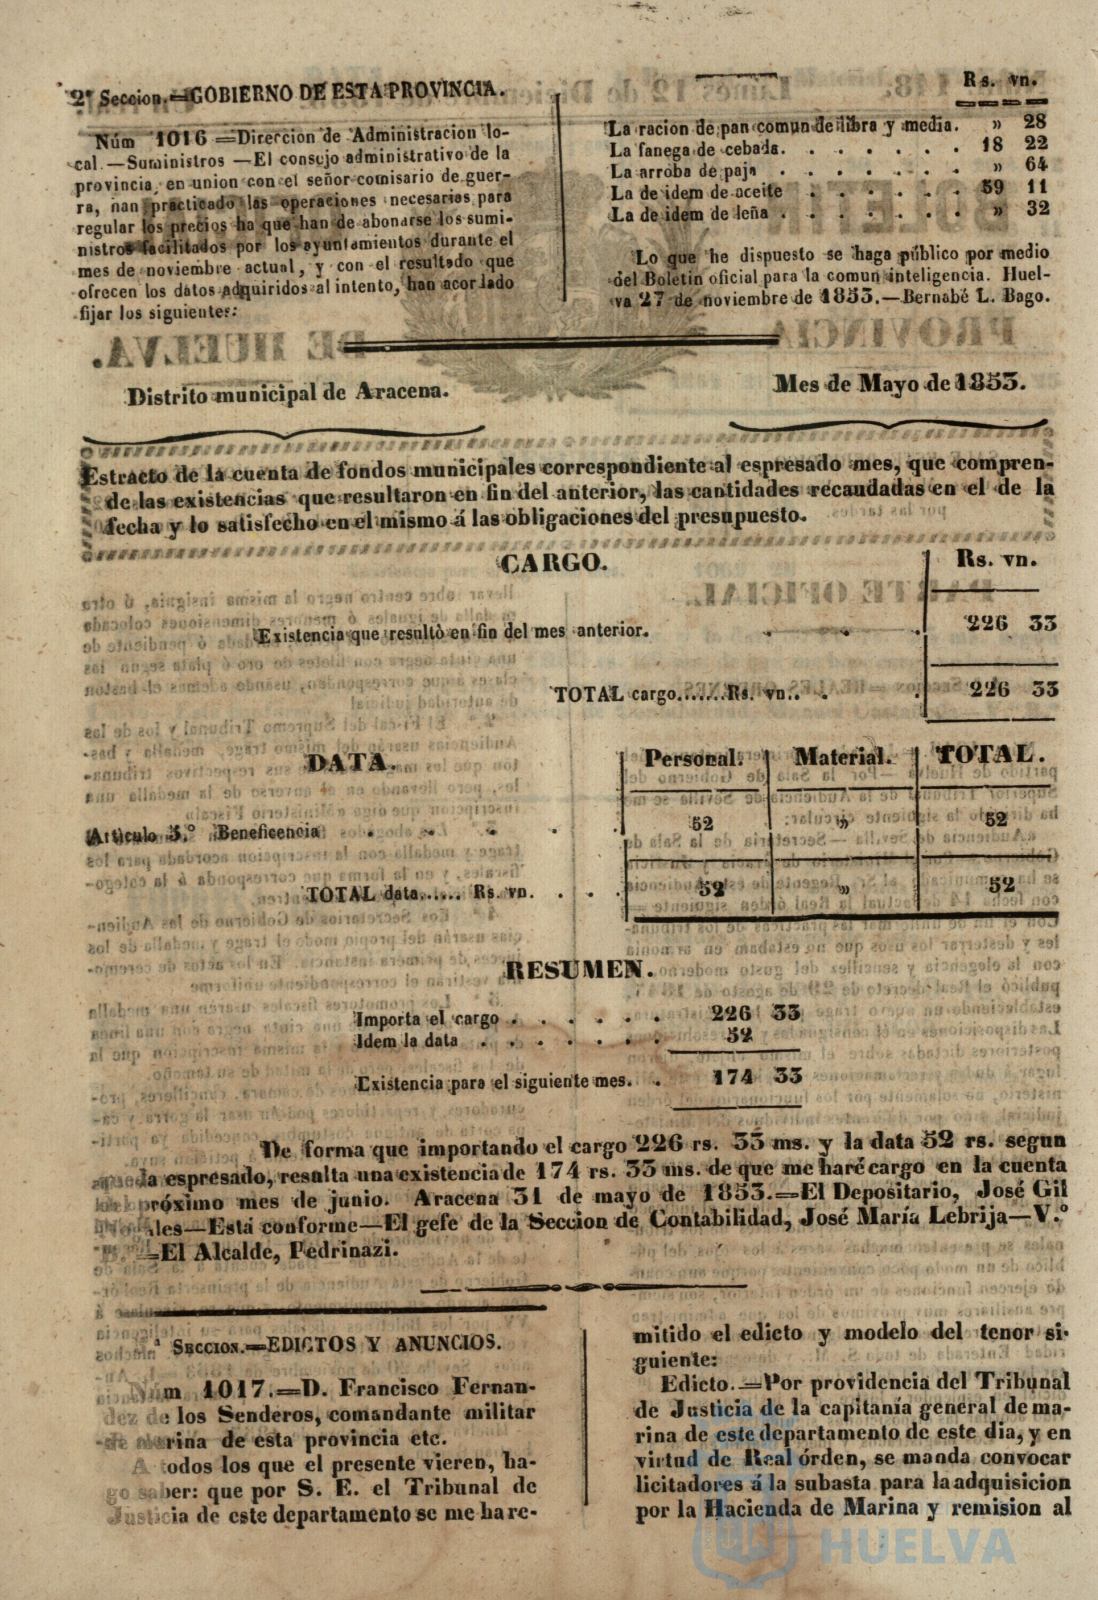 2ª Seccion.=GOBIERNO DE ESTA PROVINCIA.
Núm 1016=Direccion de Administracion lo-
cal.—Suministros—El consejo administrativo de la
provincia, en union con el señor comisario de guer-
ra, han practicado las operaciones necesarias para
regular los precios ha que han de abonarse los sumi-
nistros facilitados por los ayuntamientos durante el
mes de noviembre actual, y con el resultado que
ofrecen los datos adquiridos al intento, han acordado
fijar los siguientes:
Rs. vn.
La racion de pan comun de libra y media. » 28
La fanega de cebada. . . . . . . . 18 22
La arroba de paja . . . . . . . . » 64
La de idem de aceite . . . . . . . 59 11
La de idem de leña . . . . . . . . » 32
Lo que he dispuesto se haga público por medio
del Boletin oficial para la comun inteligencia. Huel-
va 27 de noviembre de 1853.—Bernabé L. Bago.
Distrito municipal de Aracena.
Mes de Mayo de 1853.
Estracto de la cuenta de fondos municipales correspondiente al espresado mes, que compren-
de las existencias que resultaron en fin del anterior, las cantidades recaudadas en el de la
fecha y lo satisfecho en el mismo á las obligaciones del presupuesto.
CARGO.
Rs. vn.
Existencia que resultò en fin del mes anterior. . . . 226 33
TOTAL cargo.......Rs. vn.. . . 226 33
DATA.
Personal. Material. TOTAL.
Artículo 5.º Beneficencia . . . . . 52 » 52
TOTAL data...... Rs. vn. . . . 52 » 52
RESUMEN.
Importa el cargo . . . . . . 226 33
Idem la data . . . . . . . 52
Existencia para el siguiente mes. . 174 33
De forma que importando el cargo 226 rs. 33 ms. y la data 52 rs. segun
queda espresado, resulta una existencia de 174 rs. 33 ms. de que me haré cargo en la cuenta
del próximo mes de junio. Aracena 31 de mayo de 1853.=El Depositario, José Gil
—Está conforme—El gefe de la Seccion de Contabilidad, José María Lebrija—V.º
B.º=El Alcalde, Pedrinazi.
Seccion.=EDICTOS Y ANUNCIOS.
Núm. 1017.=D. Francisco Fernan-
dez de los Senderos, comandante militar
de marina de esta provincia etc.
A todos los que el presente vieren, ha-
go saber: que por S. E. el Tribunal de
Justicia de este departamento se me ha re-
mitido el edicto y modelo del tenor si-
guiente:
Edicto.=Por providencia del Tribunal
de Justicia de la capitanía general de ma-
rina de este departamento de este dia, y en
virtud de Real órden, se manda convocar
licitadores á la subasta para la adquisicion
por la Hacienda de Marina y remision al
HUELVA